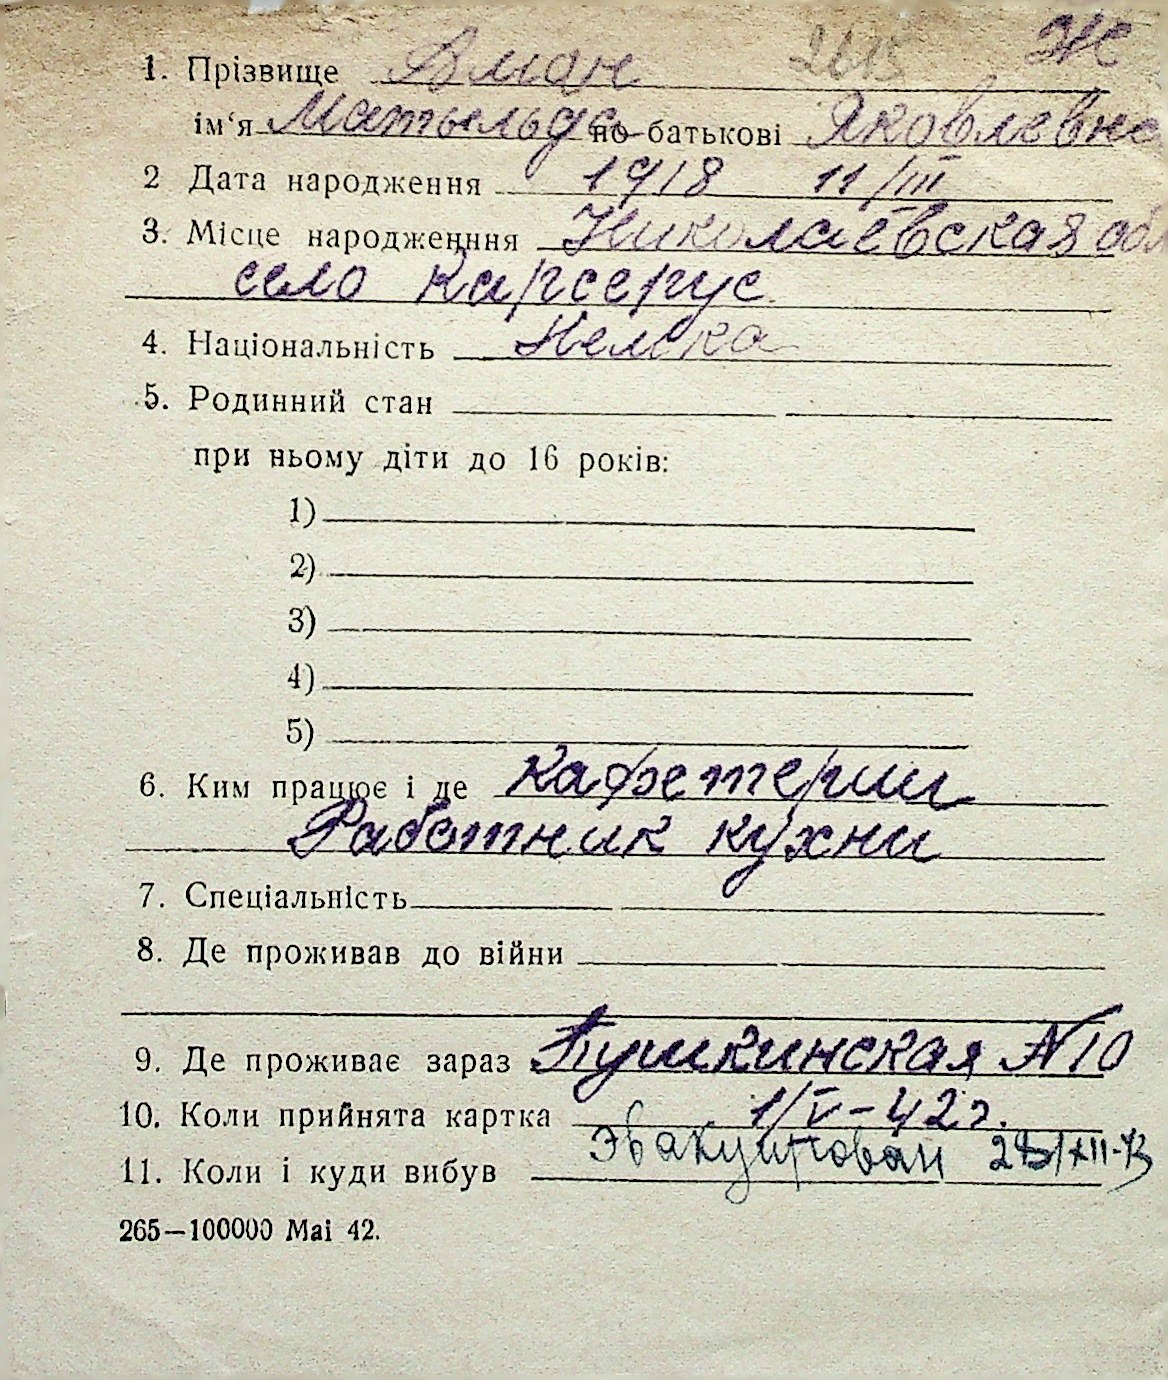 2615 Ж
1. Прізвище Аман
ім'я Матильда по батькові Яковлевна
2 Дата народження 1918 11/III
3. Місце народженння Николаевская обл
село Карсерус.
4. Національність Немка
5. Родинний стан
при ньому діти до 16 років:
1)
2)
3)
4)
5)
6. Ким працює і де Кафетерии
Работник кухни
7. Спеціальність
8. Де проживав до війни
9. Де проживає зараз Пушкинская №10
10. Коли прийнята картка 1/V-42 г.
11. Коли і куди вибув Эвакуирован
265—100000 Mai 42.